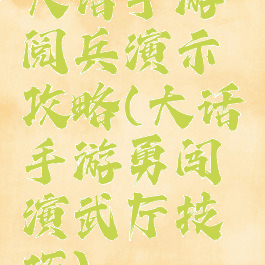 大话手游
阅兵演示
攻略(大话
手游勇闯
演武厅技
巧)